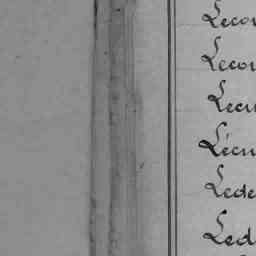 Lecor
Lecor
Lecu
Lécu
Lede
Led